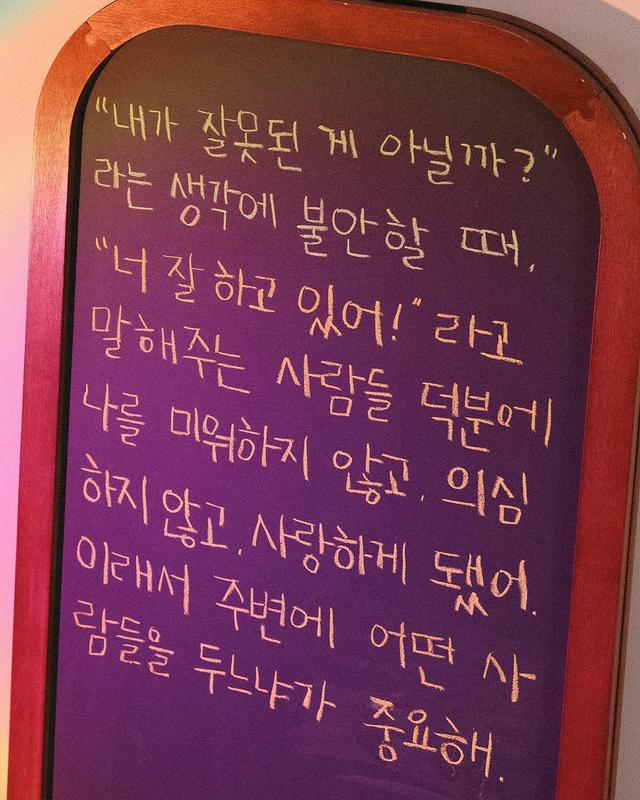 "내가 잘못된 게 아닐까?"
라는 생각에 불안할 때,
"너 잘 하고 있어!" 라고
말해주는 사람들 덕분에
나를 미워하지 않고, 의심
하지 않고, 사랑하게 됐어.
이래서 주변에 어떤 사
람들을 두느냐가 중요해.